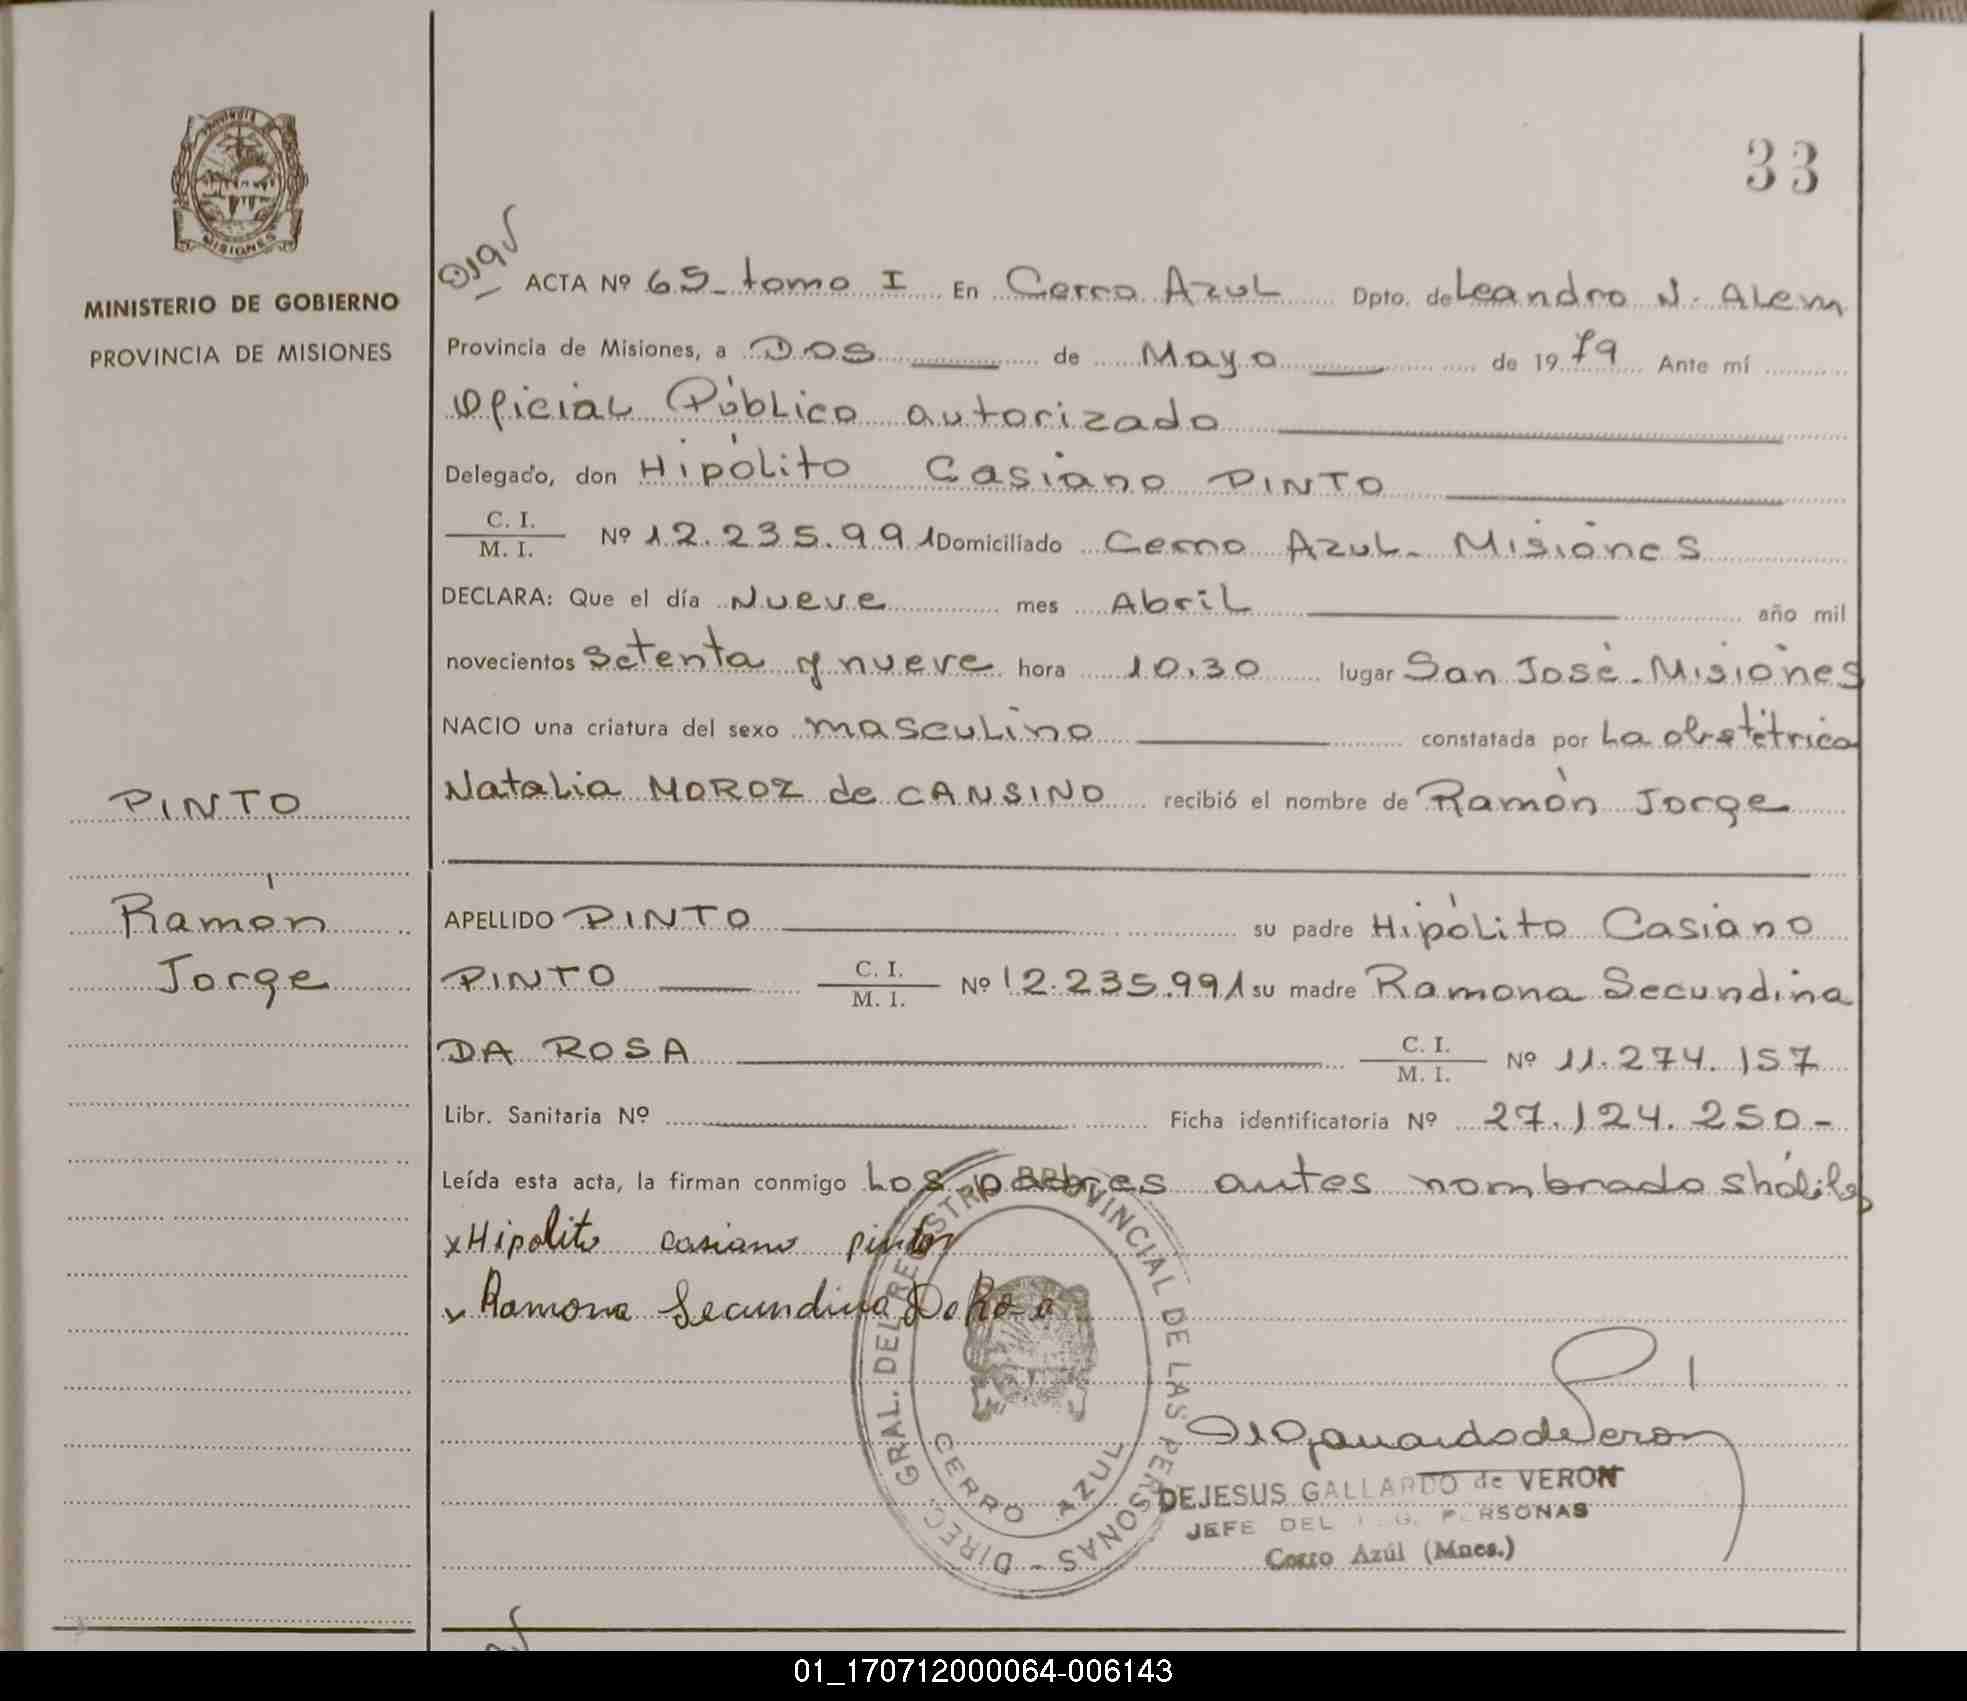 33
MINISTERIO DE GOBIERNO
PROVINCIA DE MISIONES
PINTO
Ramón
Jorge
ACTA Nº 65_ tomo I En Cerro Azul Dpto. de Leandro N. Alem
Provincia de Misiones, a DOS de Mayo de 1979 Ante mí
Oficial Público autorizado
Delegado, don Hipólito Casiano PINTO
C. I.
M. I. Nº 12.235.991 Domiciliado Cerro Azul - Misiones
DECLARA: Que el día Nueve mes Abril año mil
novecientos setenta y nueve hora 10,30 lugar San José - Misiones
NACIO una criatura del sexo masculino constatada por La obstétrica
Natalia MOROZ de CANSINO recibió el nombre de Ramón Jorge
APELLIDO PINTO su padre Hipólito Casiano
PINTO C. I. M. I. Nº 12.235.991 su madre Ramona Secundina
DA ROSA C. I. M. I. Nº 11.274.157
Libr. Sanitaria Nº Ficha identificatoria Nº 27.124.250-
Leída esta acta, la firman conmigo Los padres antes nombrados hábiles
x Hipolito casiano pinto
x Ramona Secundina Da Rosa
DIREC. GRAL. DEL REGISTRO PROVINCIAL DE LAS PERSONAS -
CERRO AZUL
DEJESUS GALLARDO de VERON
JEFE DEL PERSONAS
Cerro Azúl (Mnes.)
01_170712000064-006143